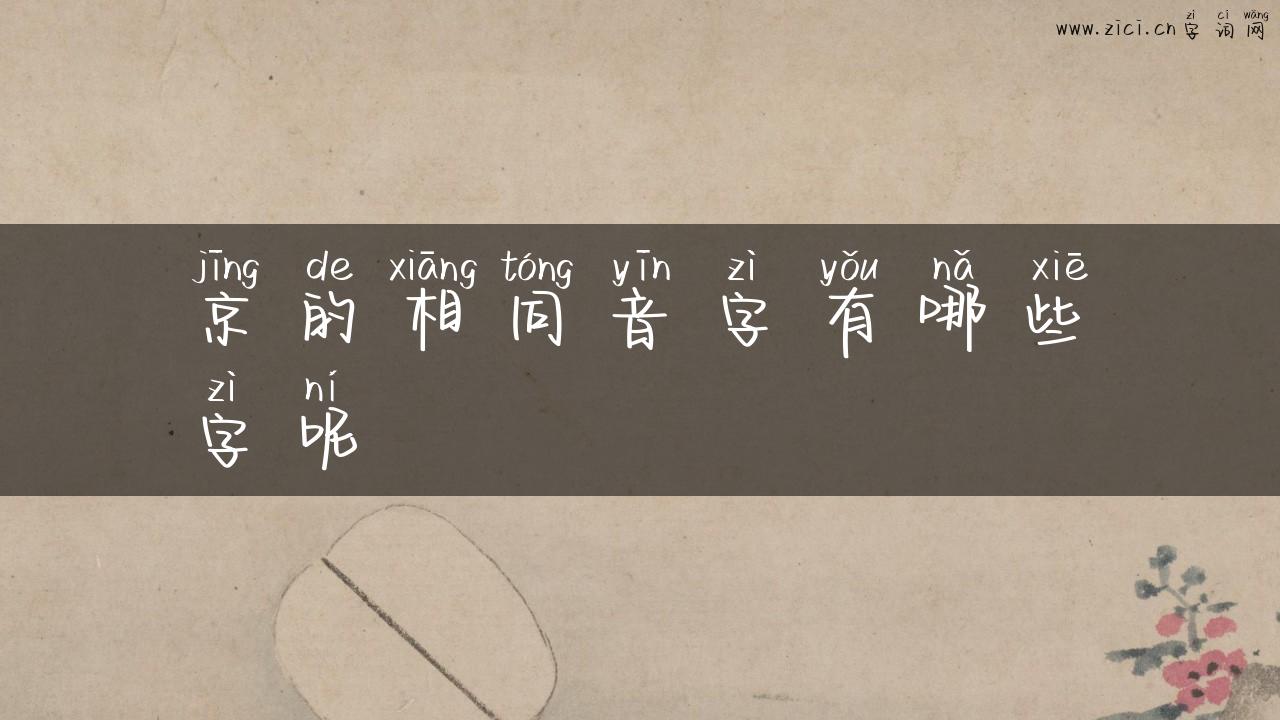 zì cí wǎng
www.zici.cn 字 词 网
jīng de xiāng tóng yīn zì yǒu nǎ xiē
京 的 相 同 音 字 有 哪 些
zì ní
字 呢